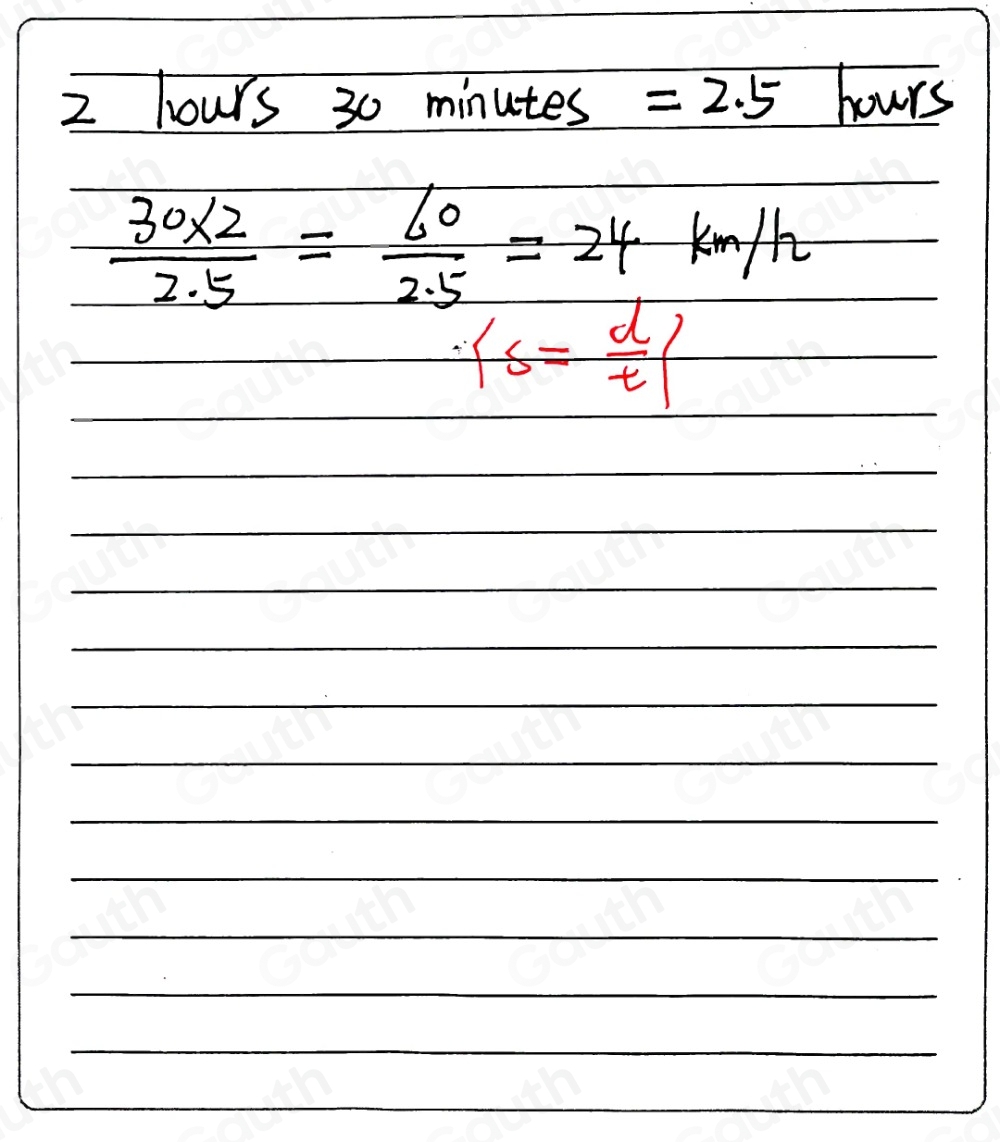 2 hours 30 minutes = 2.5 hours
30×2/2.5 = 60/2.5 = 24 km/h
{s = d/t}